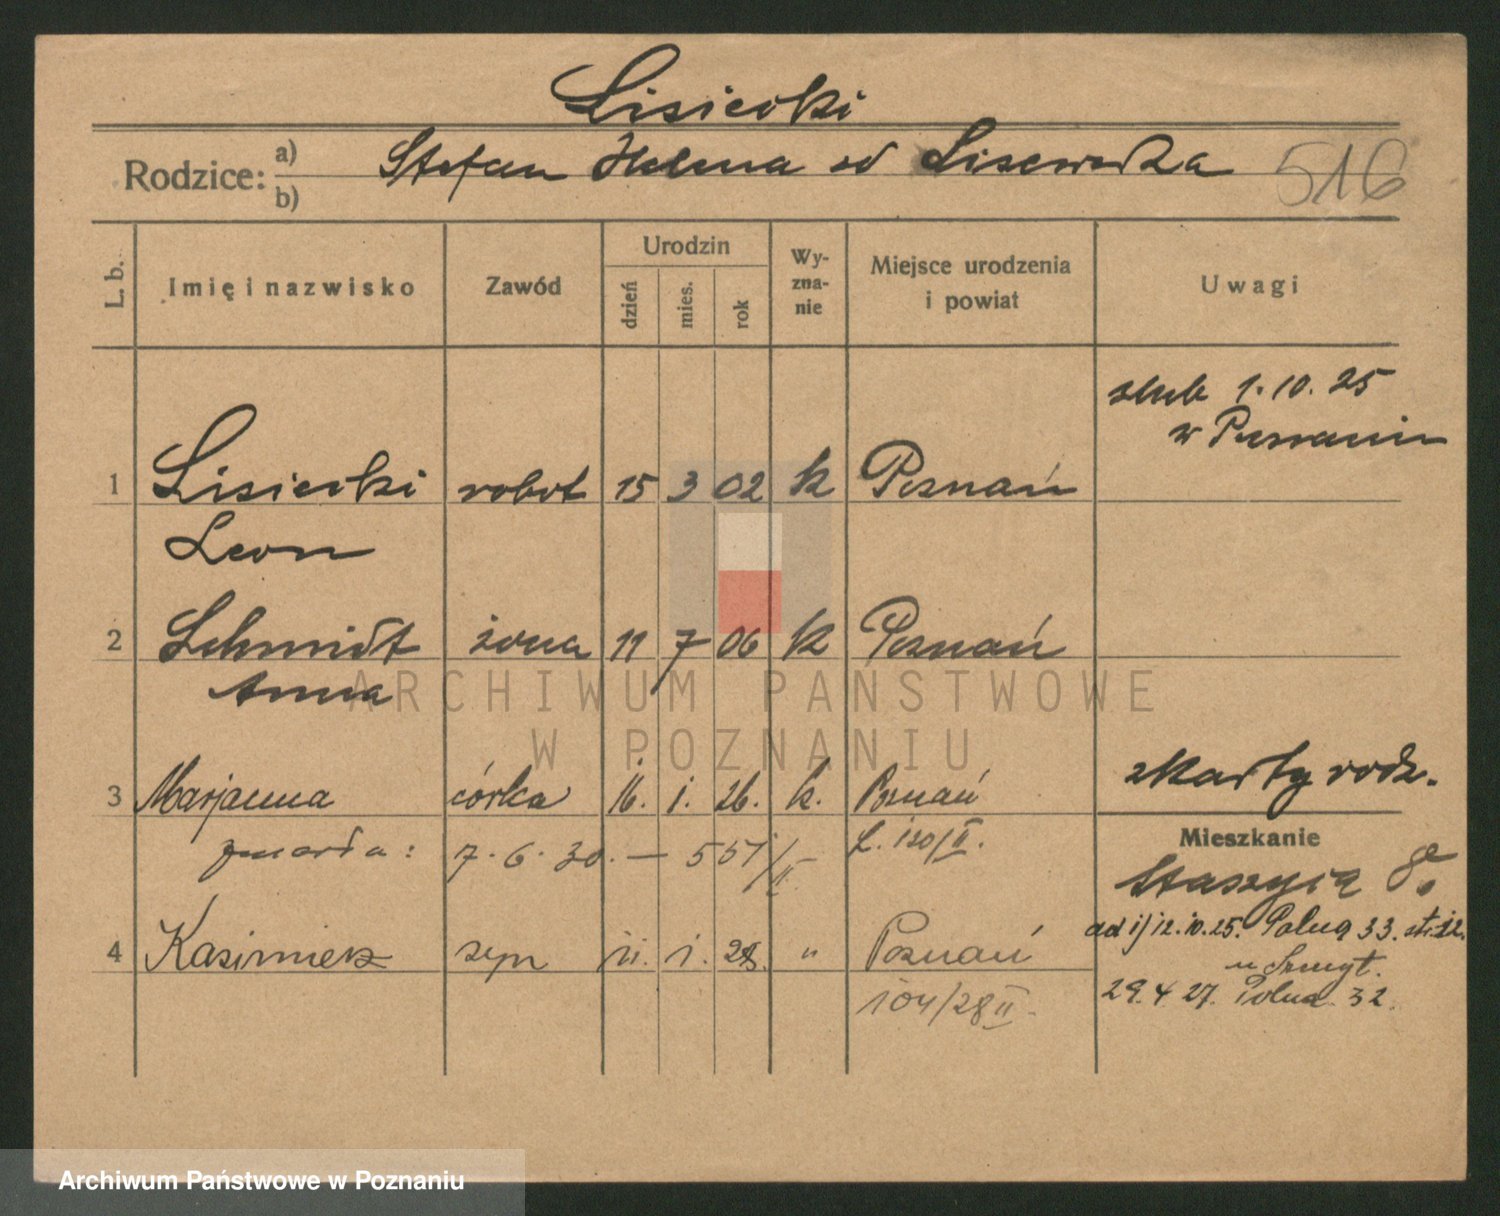 Lisiecki
Rodzice: a) b) Stefan Helena od Lisewska 516
L. b. Imię i nazwisko Zawód Urodzin dzień mies. rok Wy-zna-nie Miejsce urodzenia i powiat Uwagi
slub 1. 10. 25
w Poznaniu
1 Lisiecki robot 15 3 02 k Poznań
Leon
2 Schmidt żona 11 7 06 k Poznań
Anna
ARCHIWUM PAŃSTWOWE
W POZNANIU
3 Marjanna córka 16. 1. 26. k. Poznań z karty rodz.
zmarła: 7. 6. 30. — 551/II L. 120/II.
Mieszkanie
Staszyca 8.
ad 1/ 12. 10. 25. Polna 33. str. 12.
u Szmyt.
4 Kazimierz syn 11. 1. 28. " Poznań
29. 4. 27. Polna 32.
104/28 II.
Archiwum Państwowe w Poznaniu